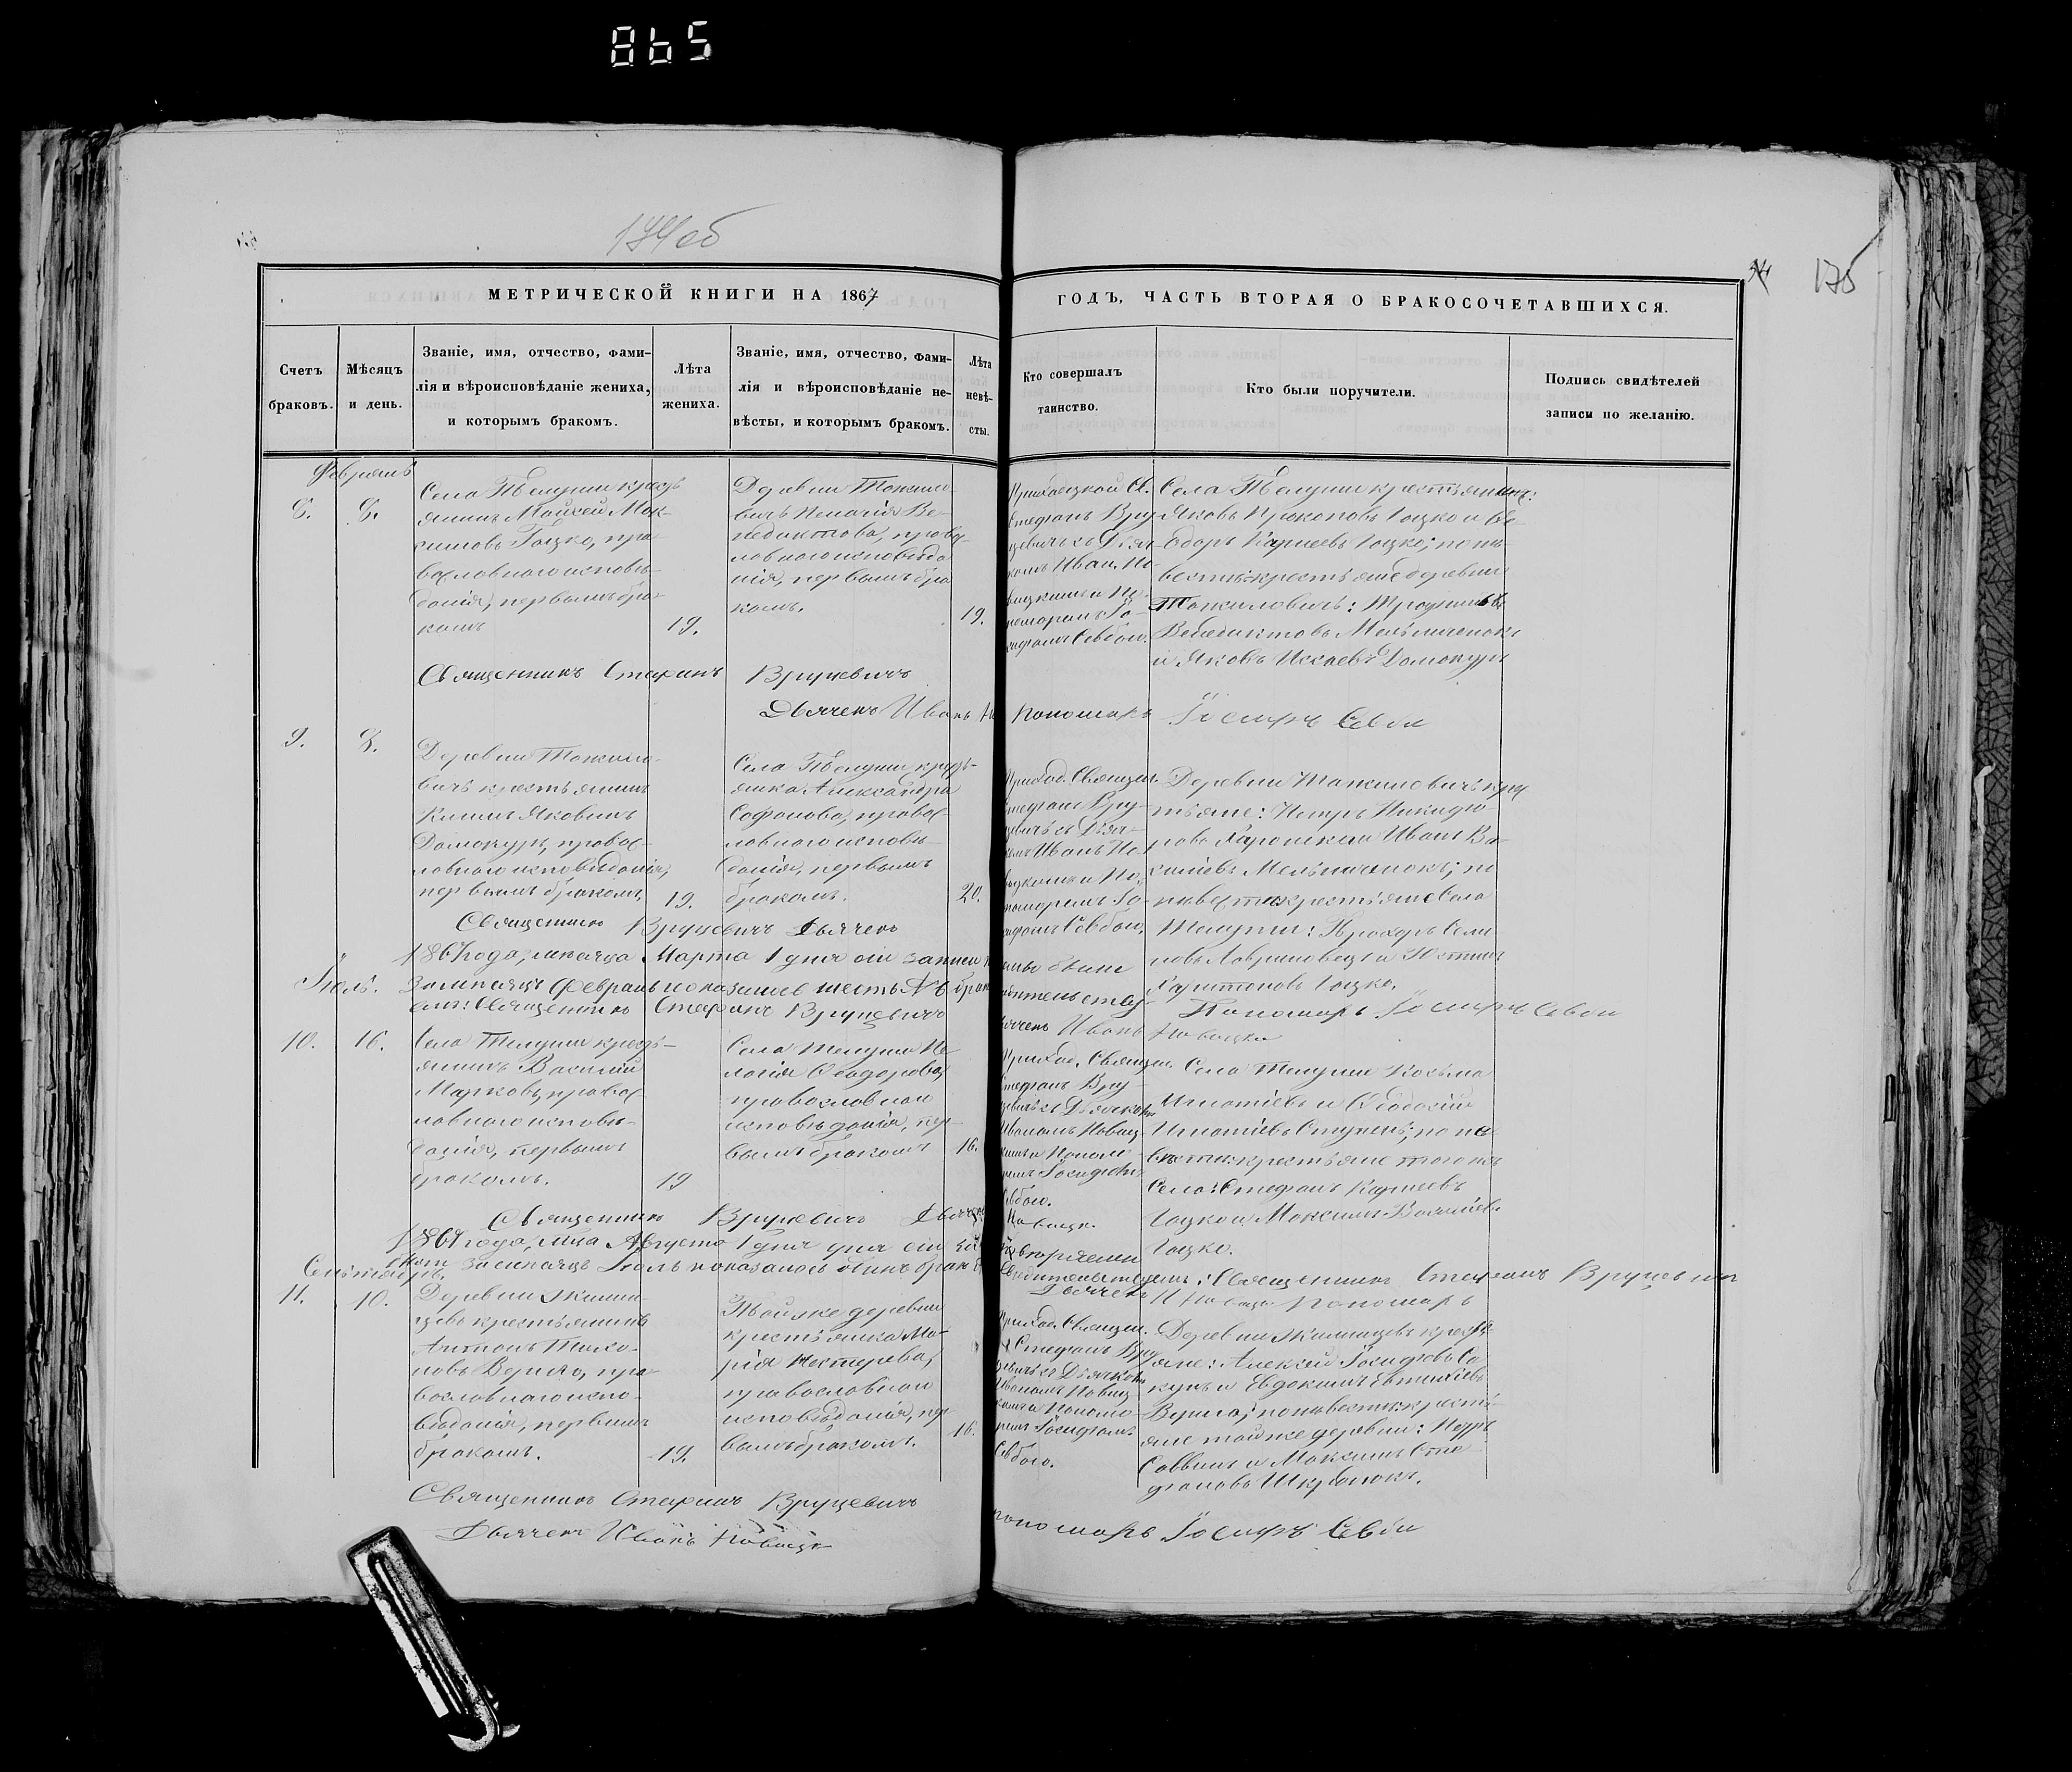 865
174об
175
МЕТРИЧЕСКОЙ КНИГИ НА 1867
ГОДЪ, ЧАСТЬ ВТОРАЯ О БРАКОСОЧЕТАВШИХСЯ.
Счетъ
браковъ.
Мѣсяцъ
и день.
Званіе, имя, отчество, фами-
лія и вѣроисповѣданіе жениха,
и которымъ бракомъ.
Лѣта
жениха.
Званіе, имя, отчество, фами-
лія и вѣроисповѣданіе не-
вѣсты, и которымъ бракомъ.
Лѣта
невѣ-
сты.
Кто совершалъ
таинство.
Кто были поручители.
Подпись свидѣтелей
записи по желанію.
Февраль
8.
8.
Села Телуши кресть
янинъ Моисей Мак-
симовъ Гацко, пра-
вославнаго исповѣ-
данія, первымъ бра-
комъ
19.
Деревни Тажило-
вичъ Пелагія Ве-
недиктова, правос-
лавнаго исповѣда
нія, первымъ бра
комъ.
19.
Приходской Св.
Стефанъ Вру-
цевичъ съ Дьяч-
комъ Иван. Но-
вицкимъ и По-
номаремъ Іо-
сифомъ Севбою.
Села Телуши крестьяминъ:
Яковъ Прокоповъ Гацко и Ѳе-
одоръ Карнеевъ Гацко; по не-
вестѣ: крестьяне деревни
Тажиловичъ: Трофимъ
Венедиктовъ Мельниченокъ
и Яковъ Исаевъ Домокуръ
Священникъ Стефанъ Вруцевичъ
Дьячекъ Иванъ Но
Пономарь Іосифъ Севба
9.
8.
Деревни Тажило-
вичъ крестьянинъ
Климъ Яковинъ
Домокуръ, правос-
лавнаго исповѣданія,
первымъ бракомъ.
19.
Села Телуши кресть-
янка Александра
Софонова, правос-
лавнаго исповѣ-
данія, первымъ
бракомъ.
20.
Приход. Священ.
Стефанъ Вру-
цевичъ съ Дьяч-
комъ Иванъ Но-
вицкимъ и По-
номаремъ Іо-
сифомъ Севбою.
Деревни Тажиловичъ крес
тьяне: Петръ Никифо
ровъ и Иванъ Ва-
силіевъ Мельниченокъ; по
невестѣ крестьяне Села
Телуши: Прохоръ Семе-
новъ и Юстинъ
Харитоновъ Гацко.
Священникъ Вруцевичъ Дьячекъ
1867 года, месяца Марта 1 дня сіи записи
за месяцъ Февраль показаніе шесть браковъ
Священникъ Стефанъ Вруцевичъ
Дьячекъ Иванъ Новицкій
Пономарь Іосифъ Севба
Іюль.
10.
16.
Села Телуши кресть-
янинъ Василій
Марковъ, правос-
лавнаго исповѣ-
данія, первымъ
бракомъ.
19
Села Телуши Пе-
лагія Ѳеодорова,
православнаго
исповѣданія, пер-
вымъ бракомъ
16.
Приход. Священ.
Стефанъ Вру-
цевичъ съ Дьячкомъ
Иваномъ Новиц-
кимъ и Понома-
ремъ Іосифомъ
Севбою.
Села Телуши Косьма
Игнатіевъ и Ѳеодосій
Игнатіевъ Ступень; по не-
вестѣ: крестьяне того же
Села: Стефанъ Карнеевъ
Гацко и Максимъ Василіевъ
Гацко.
Священникъ Вруцевичъ Дьячекъ
Новицк.
1867 года, мца Августа 1 дня
за месяцъ Іюль показаніе одинъ бракъ
свидетельствуемъ: Священникъ Стефанъ Вруцевичъ
Дьячекъ И Новицк Пономарь
Сентябрь.
11.
10.
Деревни Жилин-
цевъ крестьянинъ
Антонъ Тихо-
новъ Верига, пра
вославнаго испо-
вѣданія, первымъ
бракомъ.
19.
Той же деревни
крестьянка Ма-
рія Нестерова,
православнаго
исповѣданія, пер-
вымъ бракомъ.
16.
Приход. Священ.
Стефанъ Вру
цевичъ съ Дьячкомъ
Иваномъ Новиц
кимъ и Понома-
ремъ Іосифомъ
Севбою.
Деревни Жилинцевъ кресть-
яне: Алексей Іосифовъ Со-
кунъ и Евдокимъ Евтихіевъ
Верига; по невестѣ: кресть-
яне той же деревни: Петръ
Саввинъ и Максимъ Сте-
фановъ
Священникъ Стефанъ Вруцевичъ
Дьячекъ Иванъ Новицк
Пономарь Іосифъ Севба